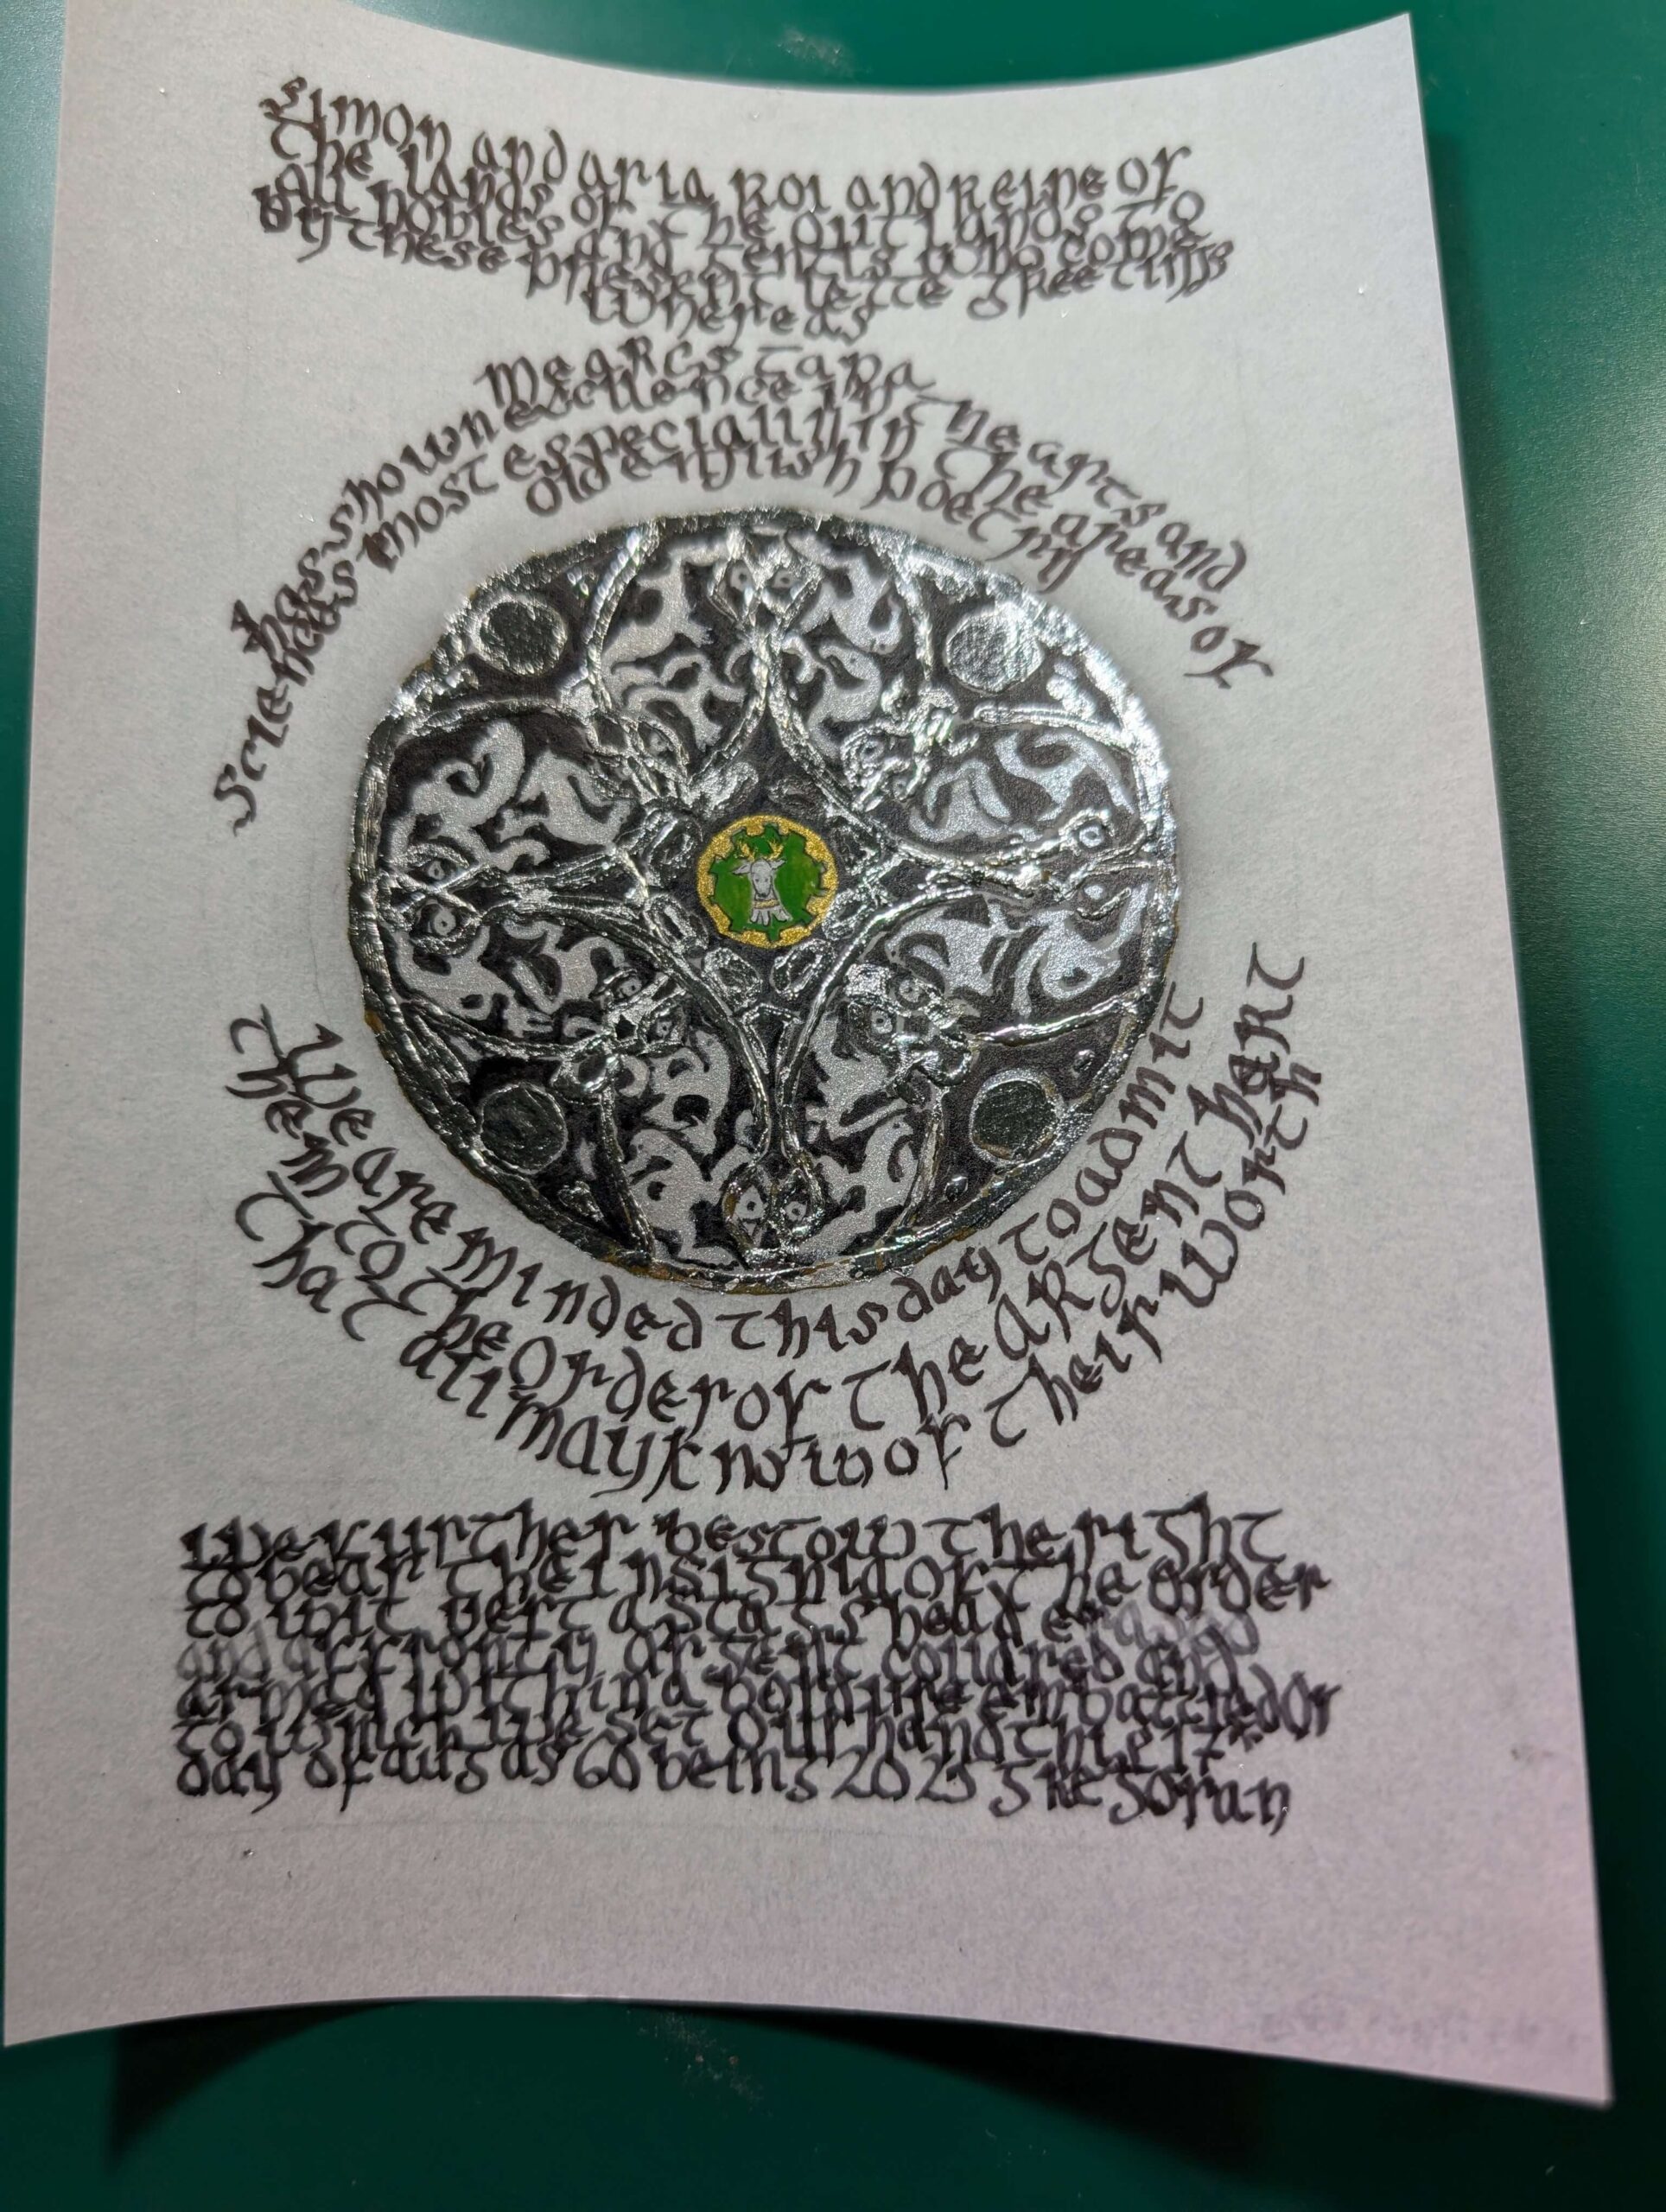 Simon and aria Roi and Reine of
the lands of the outlands to
all nobles and gentls who come
by these present lette Greetings
Whereas
Mearcstapa
has shown excellence in the arts and
sciences most especially in the areas of
old english poetry
We are minded this day to admit
them to the Order of the ARGENT HART
that all may know of their worth
We further bestow the right
to bear the insignia of the Order
to wit vert a stags head erased
and affronty argent collared and
armed within a bordure embattled or
to which we set our hand this
day of as 60 being 2025 gregorian